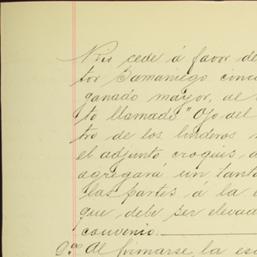 Nos cede á favor de
tor Samaniego conc
ganado mayor, al
to llamado "Ojo del
tro de los linderos
el adjunto croquis,
agregara un tant
las partes á la
que debe ser eleva
convenio.
Al firmarse la es